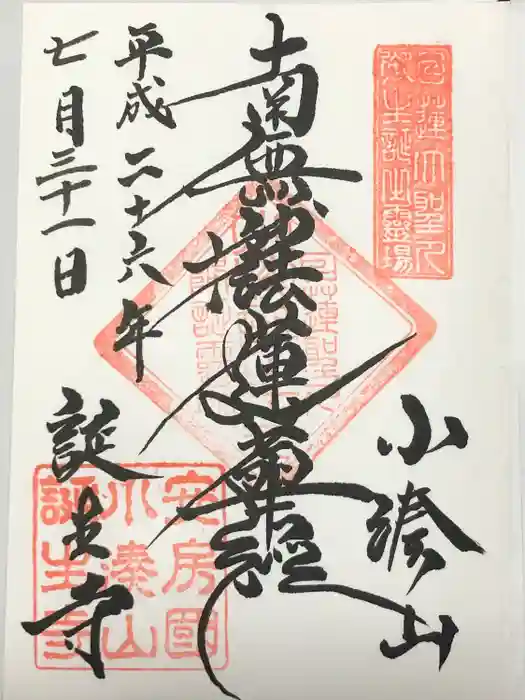 日蓮大聖人
御生誕生霊場
小湊山
南無妙法蓮華経
平成二十六年
七月三十一日
誕生寺
安房國
小湊山
誕生寺